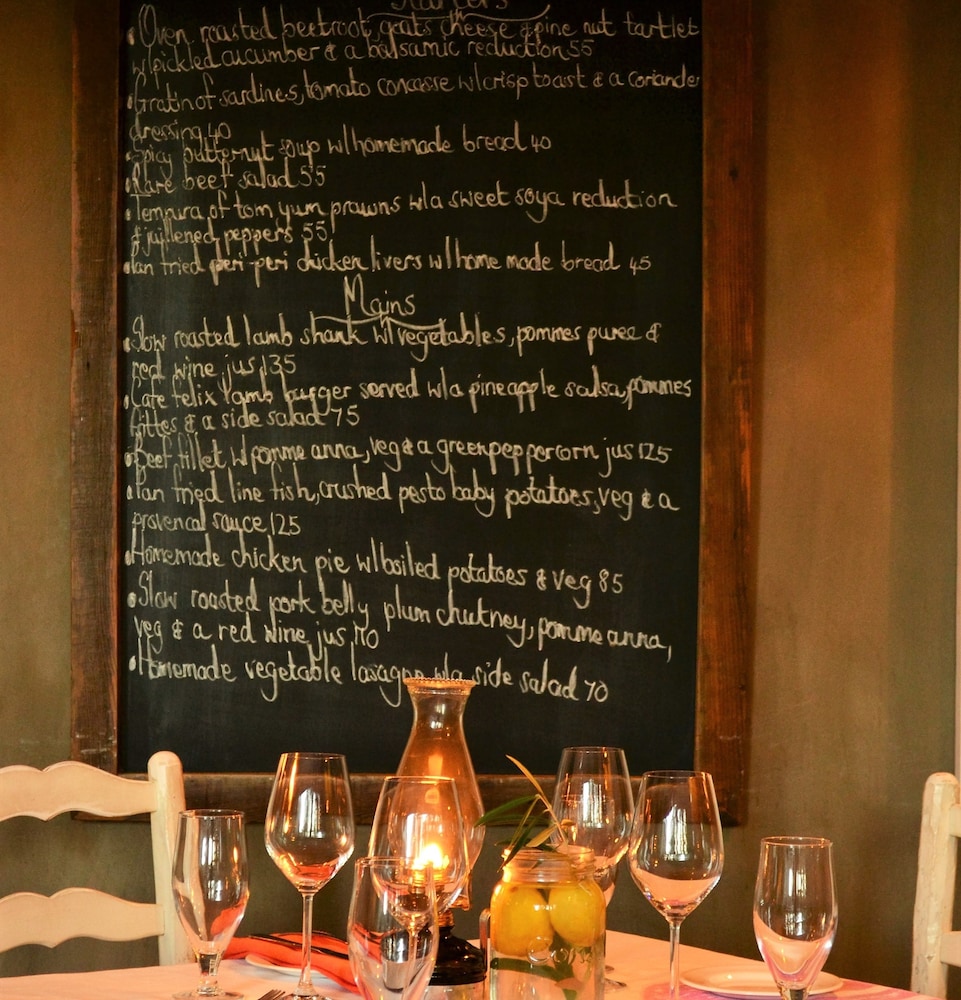 Starters
• Oven roasted beetroot, goats cheese & pine nut tartlet
w/pickled cucumber & a balsamic reduction 55
• Gratin of sardines, tomato concasse w/crisp toast & a coriander
dressing 40
• Spicy butternut soup w/homemade bread 40
• Rare beef salad 55
• Tempura of tom yum prawns w/a sweet soya reduction
& jullened peppers 55
• Pan fried peri-peri chicken livers w/home made bread 45
Mains
• Slow roasted lamb shank w/vegetables, pommes puree &
red wine jus 135
• Cafe felix lamb burger served w/a pineapple salsa, pommes
frittes & a side salad 75
• Beef fillet w/pomme anna, veg & a greenpeppercorn jus 125
• Pan fried line fish, crushed pesto baby potatoes, veg & a
provencal sauce 125
• Homemade chicken pie w/boiled potatoes & veg 85
• Slow roasted pork belly plum chutney, pomme anna,
veg & a red wine jus
• Homemade vegetable lasagne w/a side salad 70